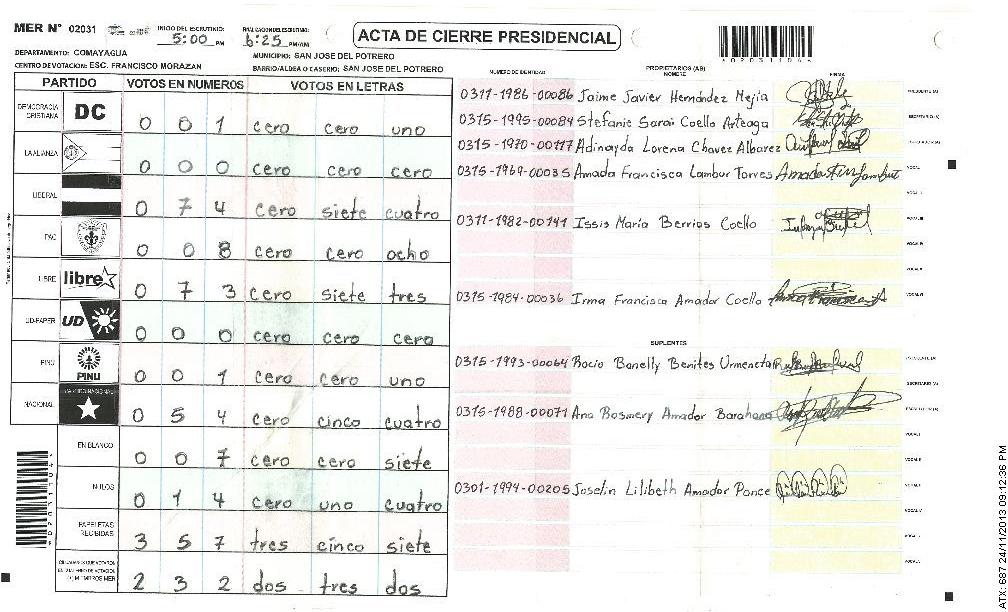 MER N° 02031
INICIO DEL ESCRUTINIO: 5:00 PM
FINALIZACION DEL ESCRUTINIO: 6:25 PM/AM
ACTA DE CIERRE PRESIDENCIAL
DEPARTAMENTO: COMAYAGUA
MUNICIPIO: SAN JOSE DEL POTRERO
CENTRO DE VOTACION: ESC. FRANCISCO MORAZAN
BARRIO/ALDEA O CASERIO: SAN JOSE DEL POTRERO
PARTIDO VOTOS EN NUMEROS VOTOS EN LETRAS
DEMOCRACIA CRISTIANA DC 0 0 1 cero cero uno
LA ALIANZA 0 0 0 cero cero cero
LIBERAL 0 7 4 cero siete cuatro
PAC 0 0 8 cero cero ocho
LIBRE libre 0 7 3 cero siete tres
UD-FAPER UD 0 0 0 cero cero cero
PINU PINU 0 0 1 cero cero uno
NACIONAL PARTIDO NACIONAL 0 5 4 cero cinco cuatro
EN BLANCO 0 0 7 cero cero siete
NULOS 0 1 4 cero uno cuatro
PAPELETAS RECIBIDAS 3 5 7 tres cinco siete
2 3 2 dos tres dos
NUMERO DE IDENTIDAD PROPIETARIOS (AS) NOMBRE FIRMA
0311-1986-00086 Jaime Javier Hernández Mejia PRESIDENTE (A)
0315-1995-00084 Stefanie Sarai Coello Arteaga SECRETARIO (A)
0315-1970-00117 Adinayda Lorena Chavez Albarez
0315-1969-00035 Amada Francisca Lambur Torres
0311-1982-00141 Issis Maria Berrios Coello
0315-1984-00036 Irma Francisca Amador Coello
SUPLENTES
0315-1993-00064 Rocio Banelly Benites Urmeneta
0315-1988-00071 Ana Rosmery Amador Barahona
0301-1994-00205 Joselin Lilibeth Amador Ponce
ATX: 687 24/11/2013 09:12:36 PM